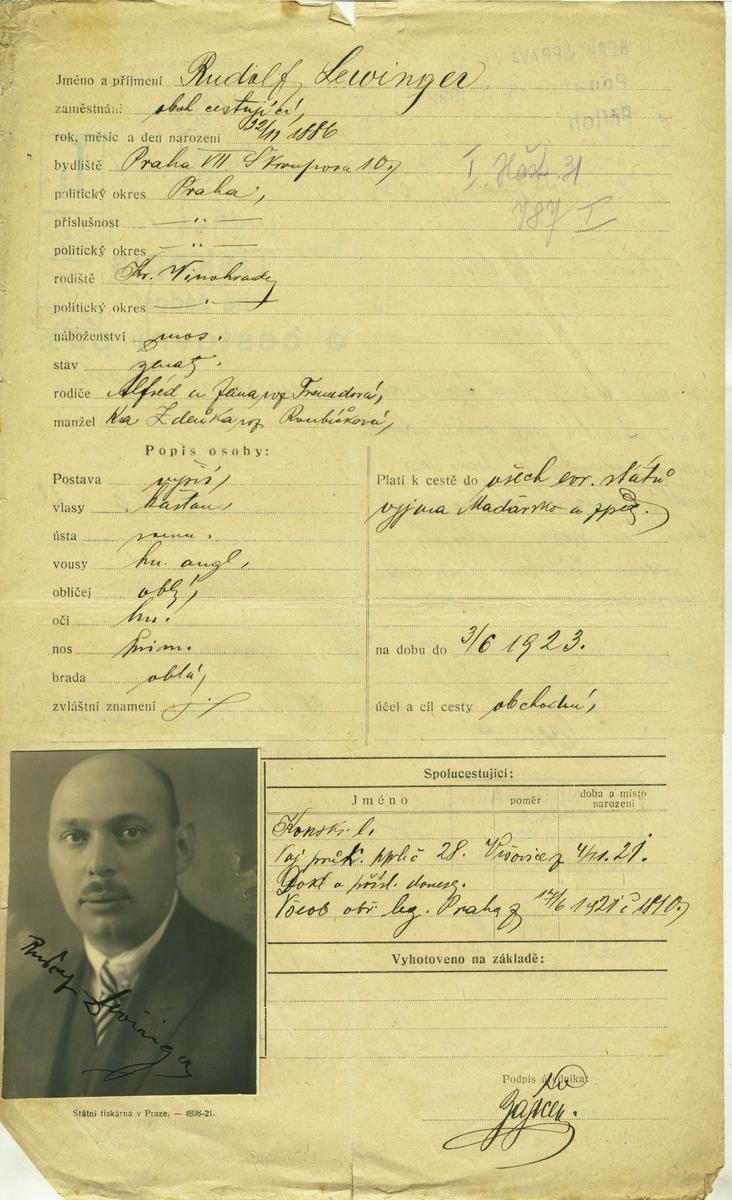 Jméno a příjmení Rudolf Lewinger
zaměstnání obch cestující,
rok, měsíc a den narození 1886
bydliště Praha VII Skroupova 10,
politický okres Praha,
příslušnost — " —
politický okres — " —
rodiště Kr. Vinohrady
politický okres — " —
náboženství mos.
stav ženatý.
rodiče Alfréd a Jana roz
manžel ka Zdeňka roz Roubíčková,
Popis osoby:
Postava vyšší,
vlasy kaštan,
ústa
vousy hn. angl,
obličej oblý,
oči hn.
nos přim.
brada oblá,
zvláštní znamení
I. 31
787 I
Platí k cestě do všech evr. států
vyjma Maďarsko a zpět.
na dobu do 3/6 1923.
účel a cíl cesty obchodní,
Rudolf Lewinger
Spolucestující:
Jméno poměr doba a místo narození
Konskr. l.
Voj průk. pplič 28. Vršovice z 4/11.21.
Dokl o přísl. donese.
Všeob obč leg. Praha z 17/6 1921 č 1810,
Vyhotoveno na základě:
Podpis úředníka:
Zajíček.
Státní tiskárna v Praze. — 4898-21.